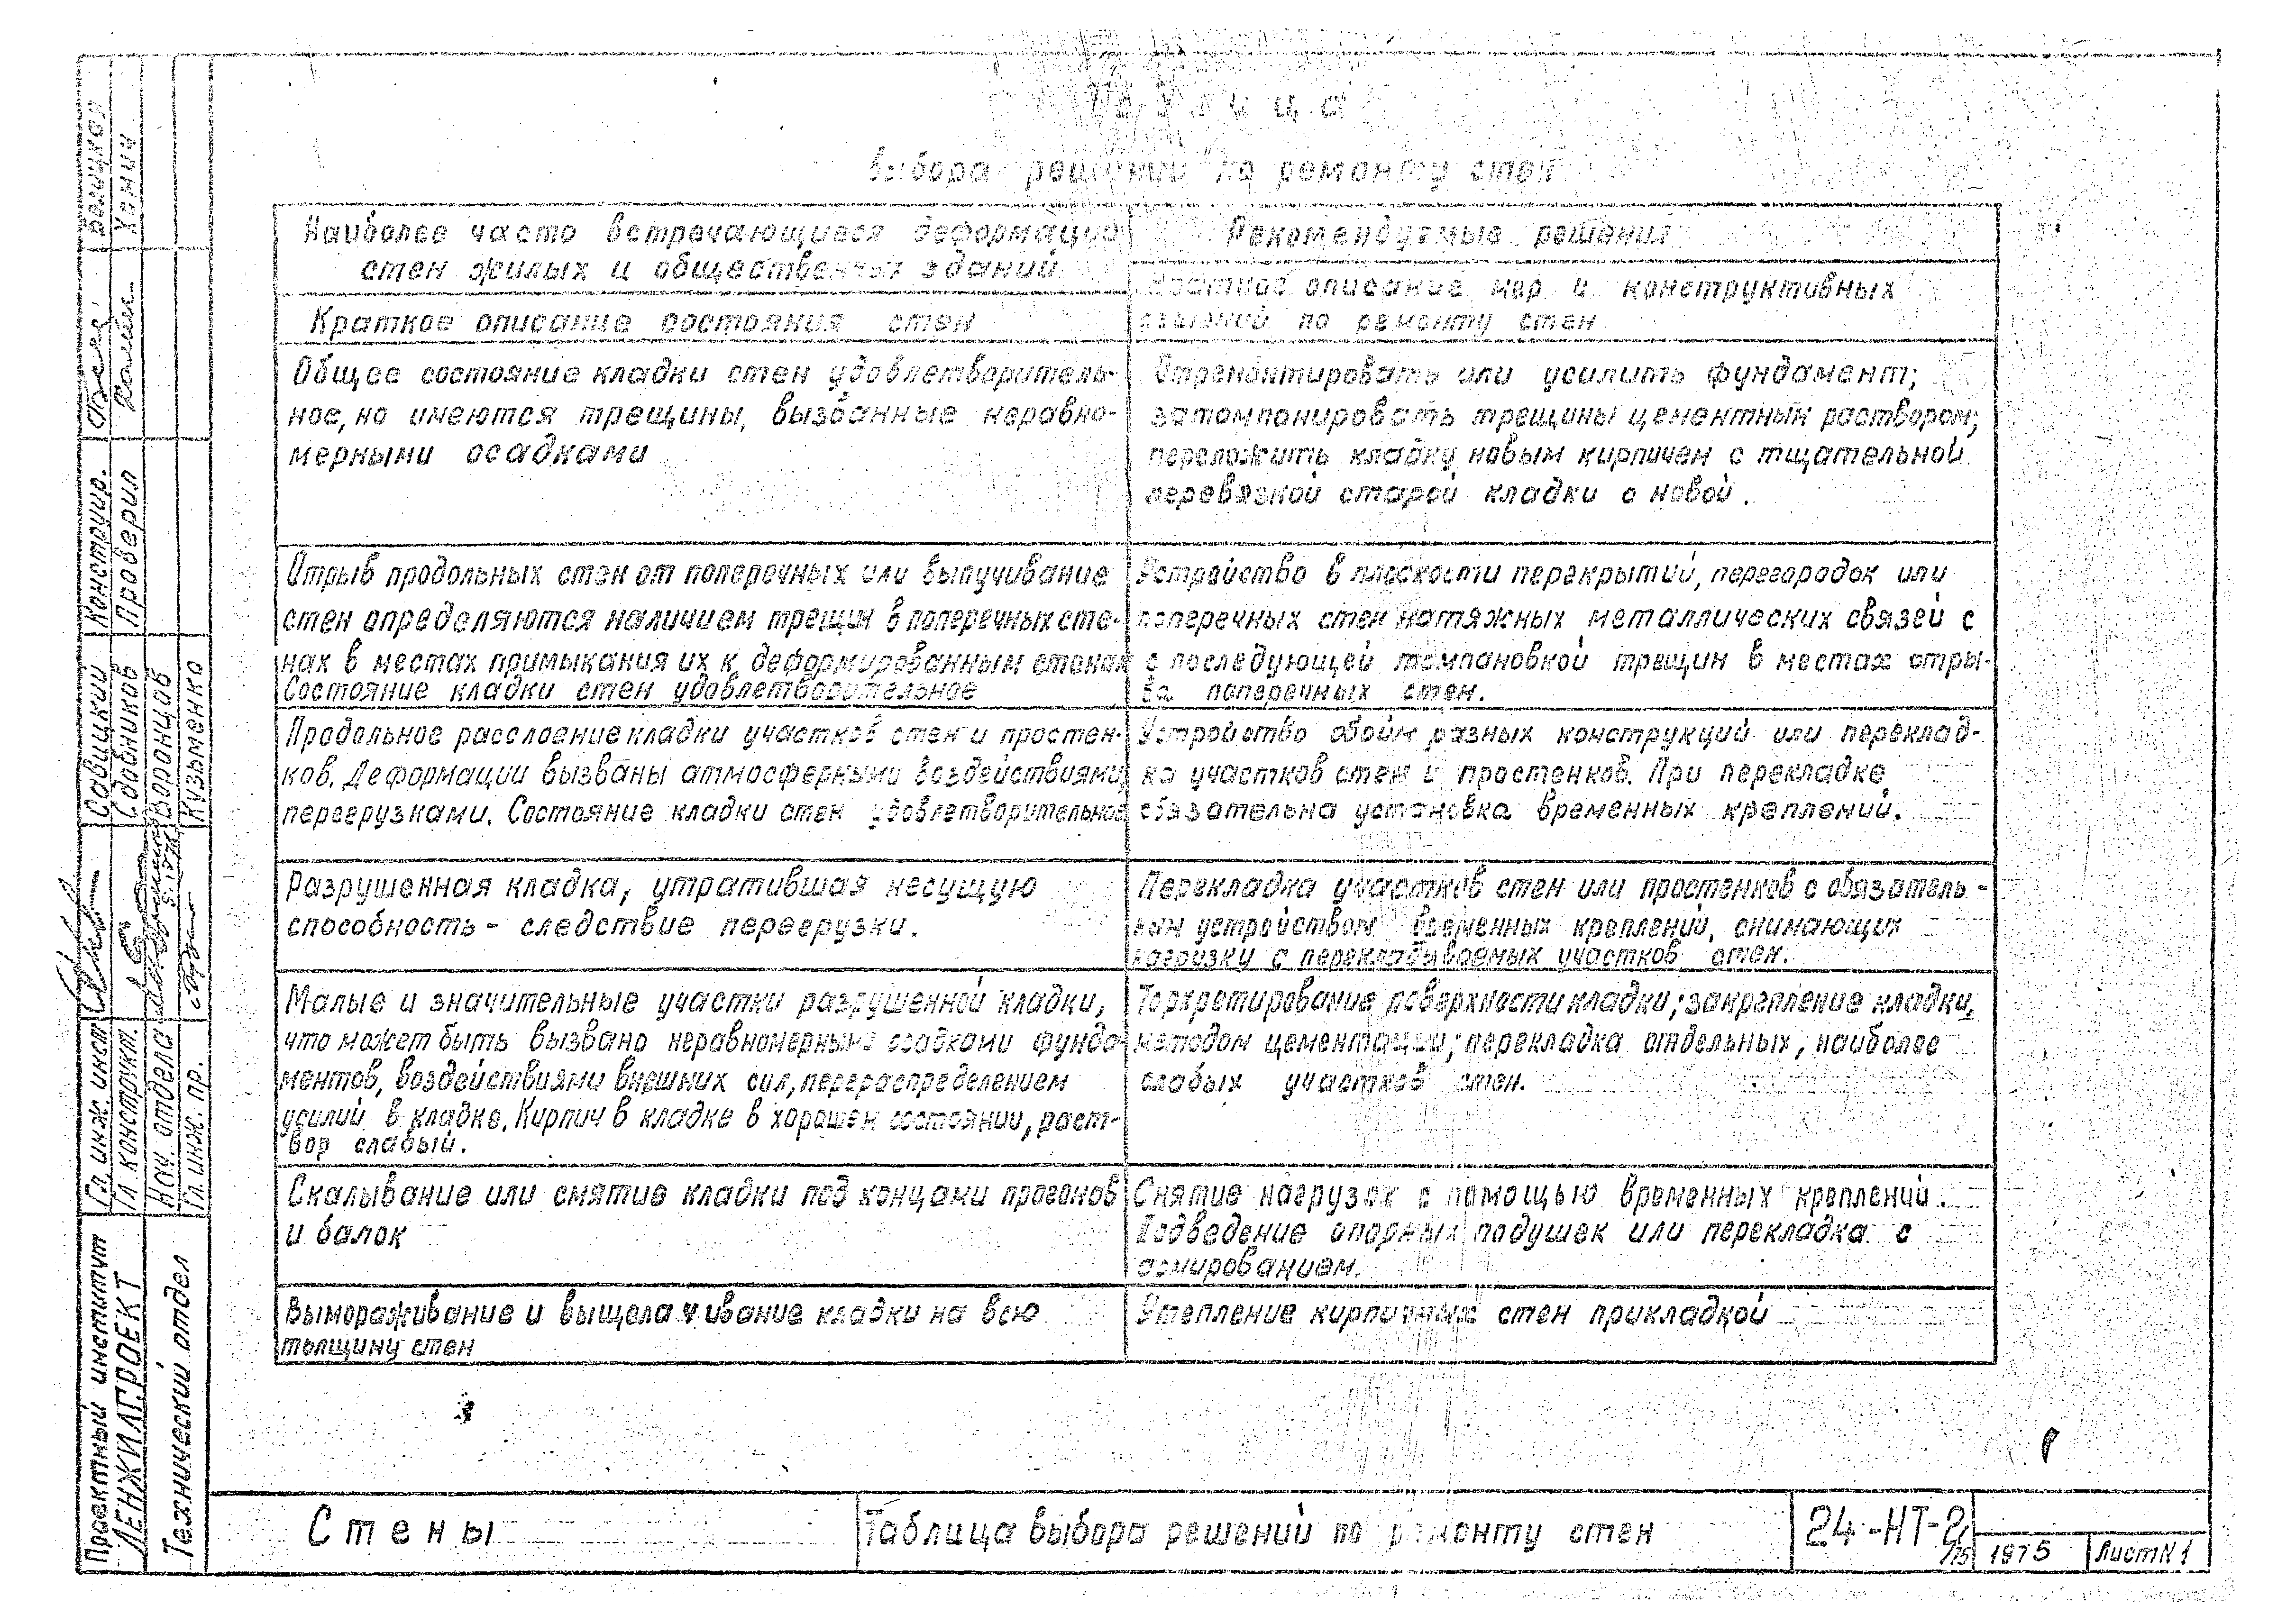 Таблица
выбора решений по ремонту стен
Наиболее часто встречающиеся деформации
стен жилых и общественных зданий
Краткое описание состояния стен
Рекомендуемые решения
Краткое описание мер и конструктивных
решений по ремонту стен
Общее состояние кладки стен удовлетворитель-
ное, но имеются трещины, вызванные неравно-
мерными осадками
Отремонтировать или усилить фундамент;
затампонировать трещины цементным раствором;
переложить кладку новым кирпичем с тщательной
перевязкой старой кладки с новой.
Отрыв продольных стен от поперечных или выпучивание
стен определяются наличием трещин в поперечных сте-
нах в местах примыкания их к деформированным стенам
Состояние кладки стен удовлетворительное
Устройство в плоскости перекрытий, перегородок или
поперечных стен натяжных металлических связей с
с последующей тампановкой трещин в местах отры-
ва поперечных стен.
Продольное расслоение кладки участков стен и простен-
ков. Деформации вызваны атмосферными воздействиями,
перегрузками. Состояние кладки стен удовлетворительное
Устройство обойм разных конструкций или переклад-
ка участков стен и простенков. При перекладке
обязательна установка временных креплений.
Разрушенная кладка, утратившая несущую
способность - следствие перегрузки.
Перекладка участков стен или простенков с обязатель-
ным устройством временных креплений, снимающих
нагрузку с перекладываемых участков стен.
Малые и значительные участки разрушенной кладки,
что может быть вызвано неравномерными осадками фунда-
ментов, воздействиями внешних сил, перераспределением
усилий в кладке. Кирпич в кладке в хорошем состоянии, раст-
вор слабый.
Торкретирование поверхности кладки; закрепление кладки
методом цементации; перекладка отдельных, наиболее
слабых участков стен.
Скалывание или смятие кладки под концами прогонов
и балок
Снятие нагрузок с помощью временных креплений.
Подведение опорных подушек или перекладка с
армированием.
Вымораживание и выщелачивание кладки на всю
толщину стен
Утепление кирпичных стен прикладкой
Стены
Таблица выбора решений по ремонту стен
24-НТ-2/75
1975
Лист N 1
Проектный институт
ЛЕНЖИЛПРОЕКТ
Технический отдел
Гл. инж. инст
Савицкий
Конструир.
Гл. конструкт.
Садчиков
Проверил
Хенич
Нач. отдела
Воронцов
Гл. инж. пр.
Кузьменко